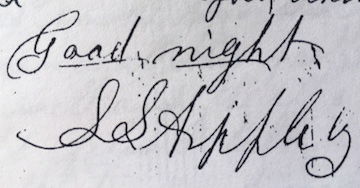 Good night,
S S Appley